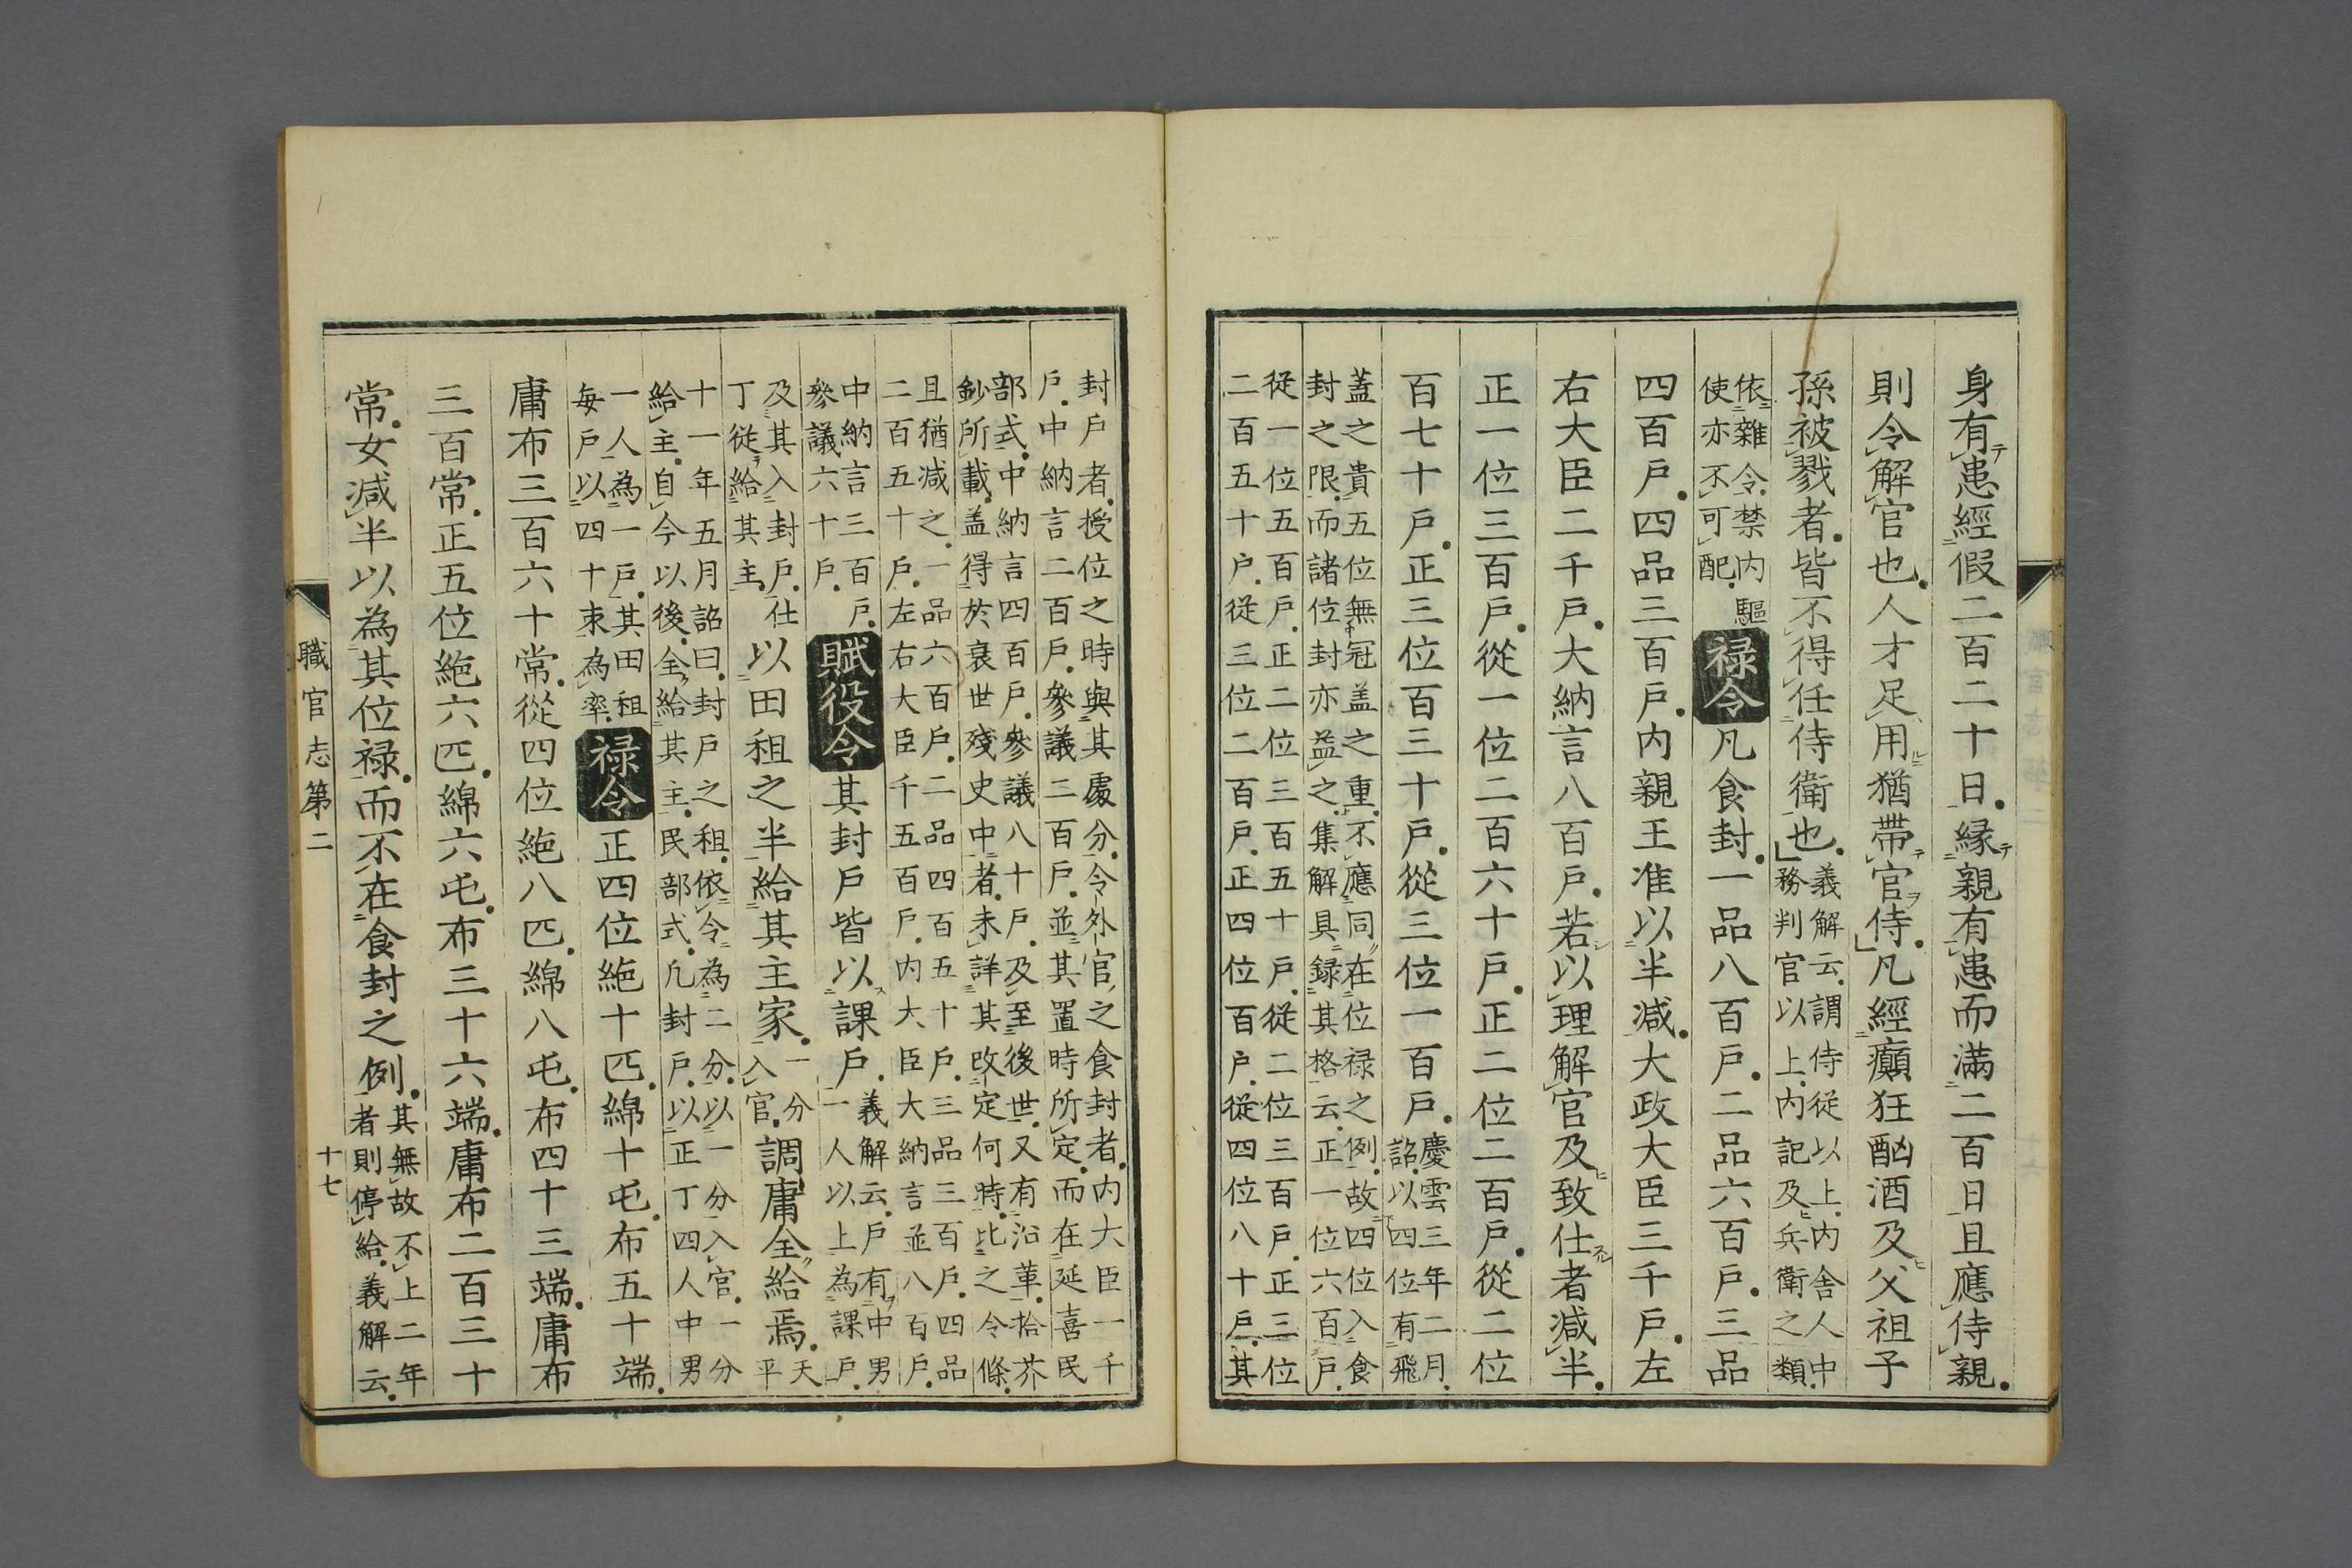 身有患經假二百二十日緣親有患而滿二百日且應侍親
則令解官也人才足用猶帶官侍凡經癲狂酗酒及父祖子
孫被戮者皆不得任侍衛也義解云謂侍從以上內舍人中
務判官以上內記及兵衛之類
依雜令禁內驅
使亦不可配
禄令凡食封一品八百戶二品六百戶三品
四百戶四品三百戶內親王准以半減大政大臣三千戶左
右大臣二千戶大納言八百戶若以理解官及致仕者減半
正一位三百戶從一位二百六十戶正二位二百戶從二位
百七十戶正三位百三十戶從三位一百戶慶雲三年二月
詔以四位有飛
蓋之貴五位無冠盖之重不應同在位禄之例故四位入食
封之限而諸位封亦益之集解具録其格云正一位六百戶
從一位五百戶正二位三百五十戶從二位三百戶正三位
二百五十戶從三位二百戶正四位百戶從四位八十戶其
封戶者授位之時與其處分令外官之食封者內大臣一千
戶中納言二百戶參議二百戶並其置時所定而在延喜民
部式中納言四百戶參議八十戶及至後世又有沿革拾芥
鈔所載盖得於衰世殘史中者未詳其改定何時比之令條
且猶減之一品六百戶二品四百五十戶三品三百戶四品
二百五十戶左右大臣千五百戶內大臣大納言並八百戶
中納言三百戶
參議六十戶
賦役令其封戶皆以課戶義解云戶有中男
一人以上為課戶
及其入封戶仕
丁從給其主
以田租之半給其主家一分
入官
調庸全給焉天
平
十一年五月詔曰封戶之租依令為二分以一分入官一分
給主自今以後全給其主民部式凡封戶以正丁四人中男
一人為一戶其田租
每戶以四十束為率
禄令正四位絁十匹綿十屯布五十端
庸布三百六十常從四位絁八匹綿八屯布四十三端庸布
三百常正五位絁六匹綿六屯布三十六端庸布二百三十
常女減半以為其位禄而不在食封之例其無故不上二年
者則停給義解云
職官志第二
十七